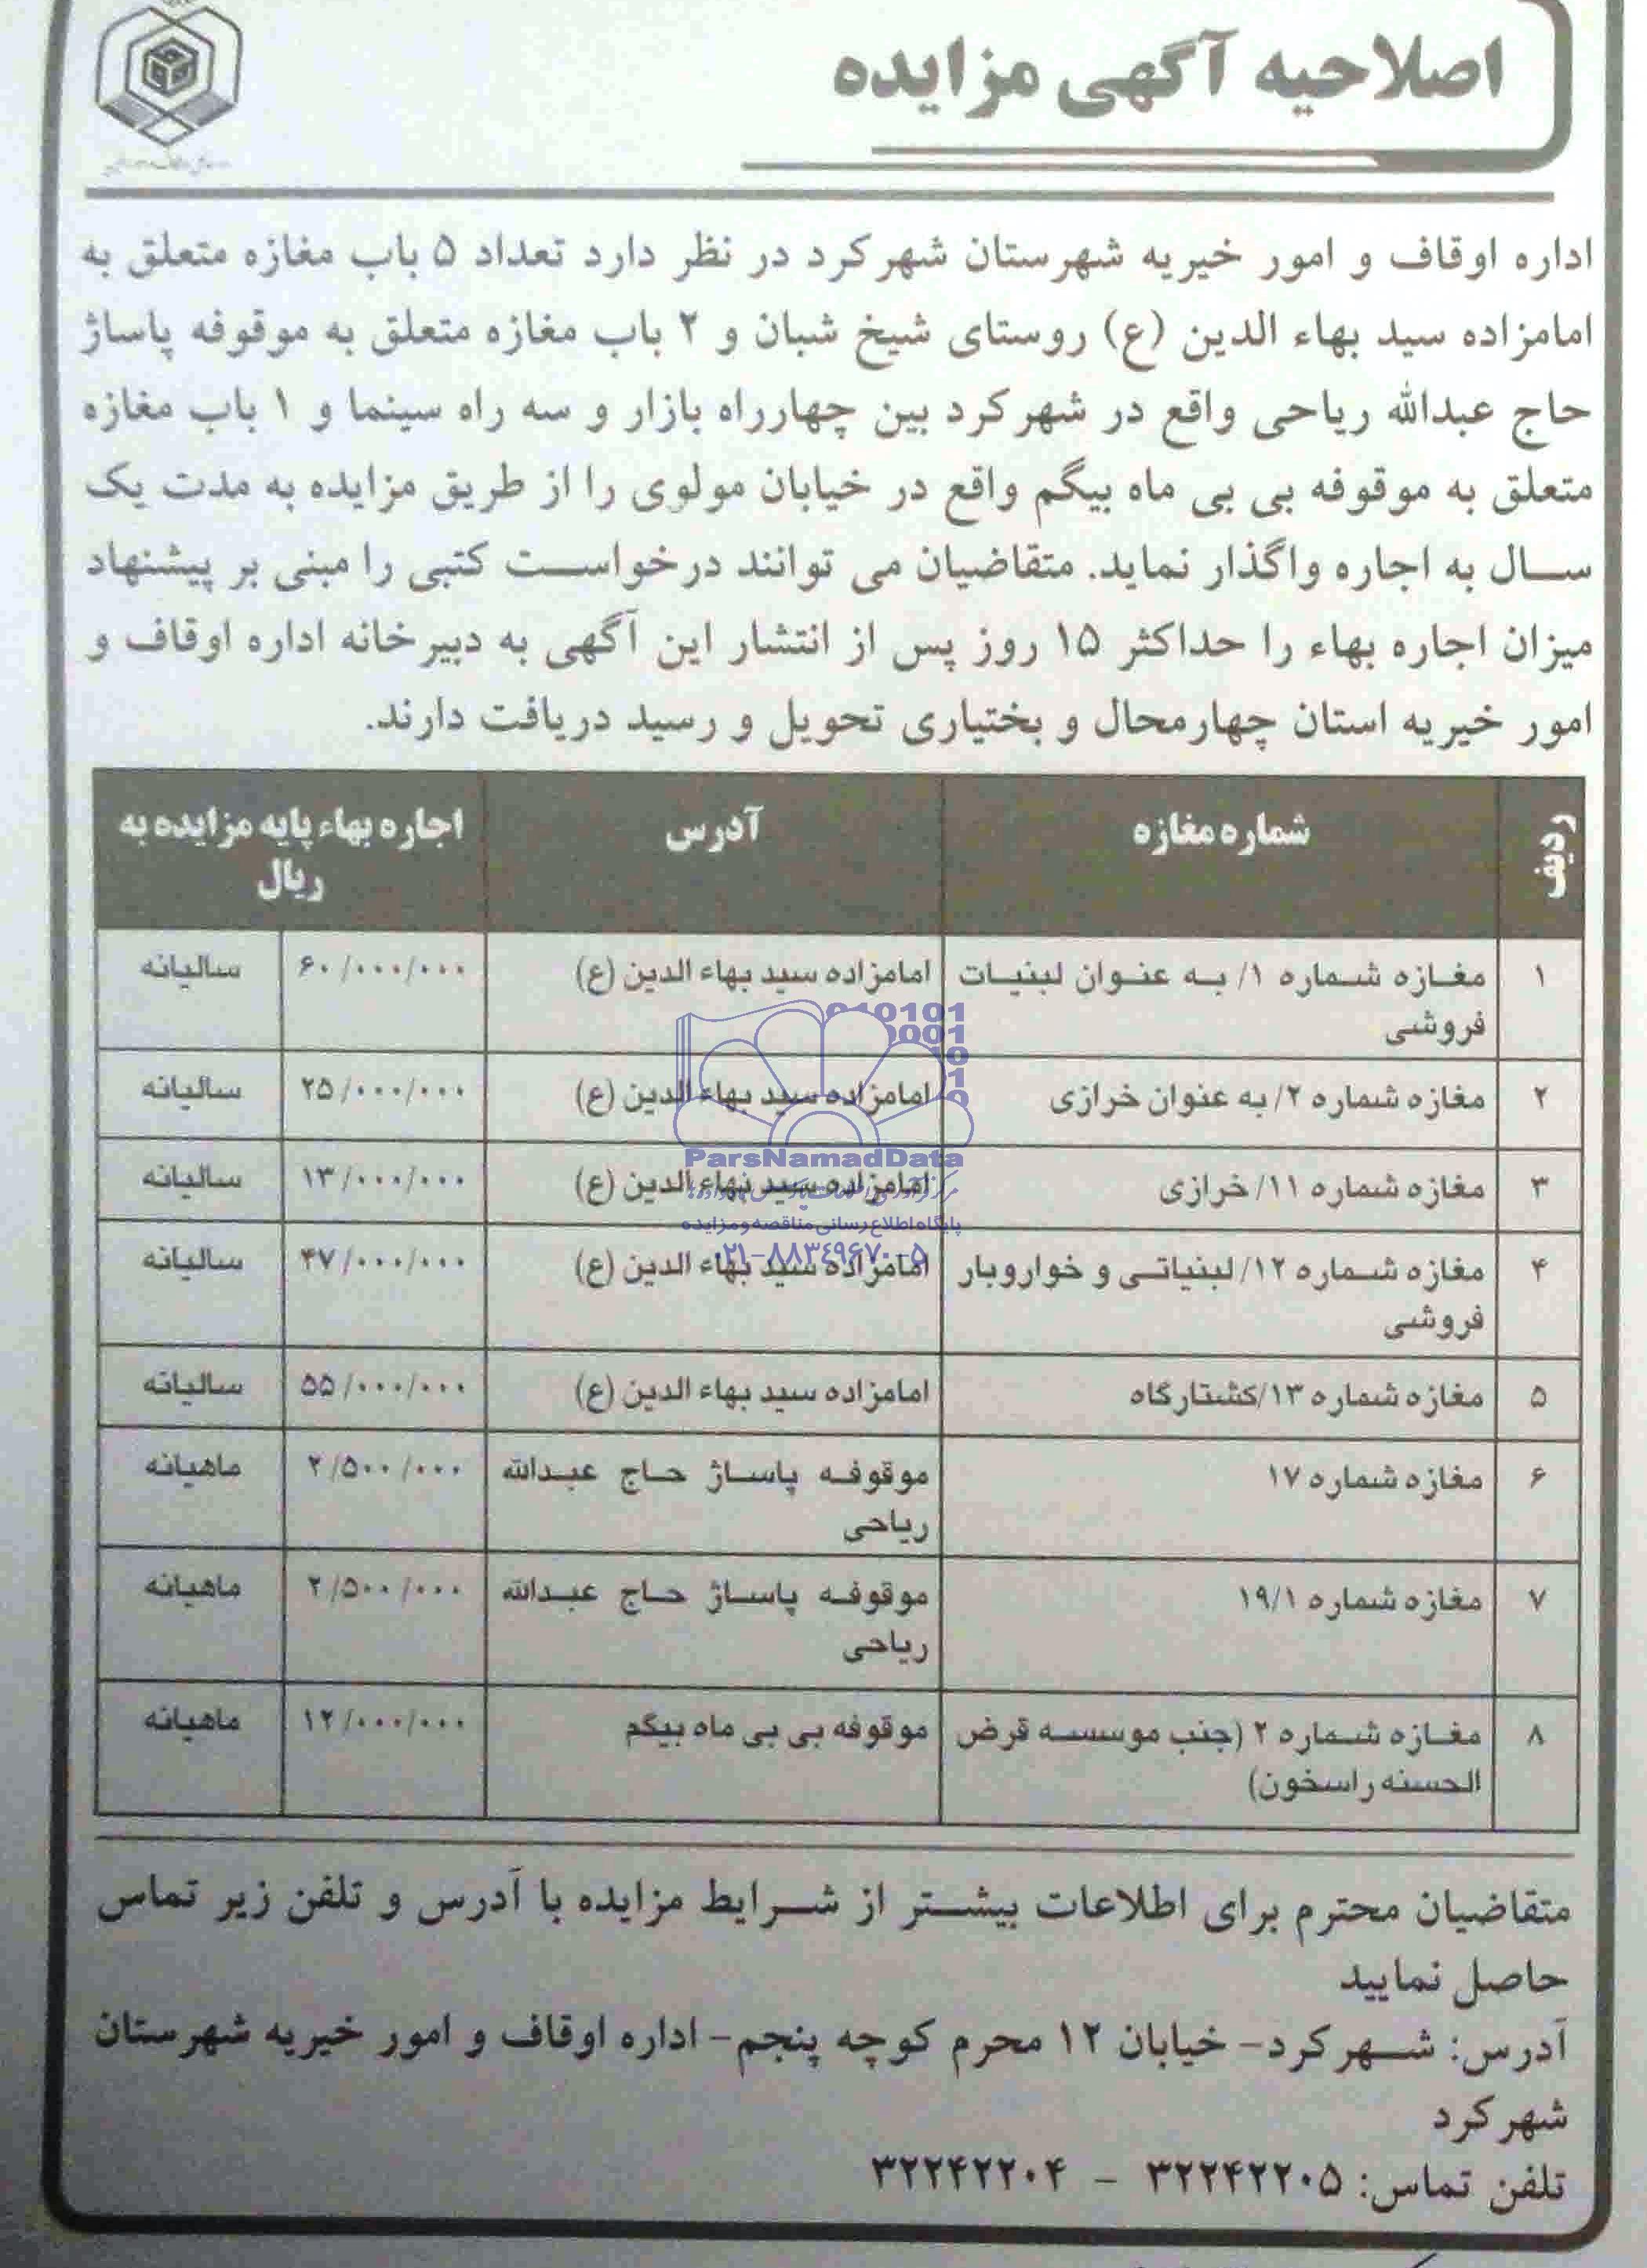 اصلاحیه آگهی مزایده
اداره اوقاف و امور خیریه شهرستان شهرکرد در نظر دارد تعداد ۵ باب مغازه متعلق به
امامزاده سید بهاء الدین (ع) روستای شیخ شبان و ۲ باب مغازه متعلق به موقوفه پاساژ
حاج عبدالله ریاحی واقع در شهرکرد بین چهارراه بازار و سه راه سینما و ۱ باب مغازه
متعلق به موقوفه بی بی ماه بیگم واقع در خیابان مولوی را از طریق مزایده به مدت یک
سال به اجاره واگذار نماید. متقاضیان می توانند درخواست کتبی را مبنی بر پیشنهاد
میزان اجاره بهاء را حداکثر ۱۵ روز پس از انتشار این آگهی به دبیرخانه اداره اوقاف و
امور خیریه استان چهارمحال و بختیاری تحویل و رسید دریافت دارند.
ردیف شماره مغازه آدرس اجاره بهاء پایه مزایده به
ریال
۱ مغازه شماره ۱/ به عنوان لبنیات امامزاده سید بهاء الدین (ع) ۶۰/۰۰۰/۰۰۰ سالیانه
فروشی
۲ مغازه شماره ۲/ به عنوان خرازی امامزاده سید بهاء الدین (ع) ۲۵/۰۰۰/۰۰۰ سالیانه
۳ مغازه شماره ۱۱/ خرازی امامزاده سید بهاء الدین (ع) ۱۳/۰۰۰/۰۰۰ سالیانه
۴ مغازه شماره ۱۲/ لبنیاتی و خواروبار امامزاده سید بهاء الدین (ع) ۴۷/۰۰۰/۰۰۰ سالیانه
فروشی
۵ مغازه شماره ۱۳/کشتارگاه امامزاده سید بهاء الدین (ع) ۵۵/۰۰۰/۰۰۰ سالیانه
۶ مغازه شماره ۱۷ موقوفه پاساژ حاج عبدالله ۲/۵۰۰/۰۰۰ ماهیانه
ریاحی
۷ مغازه شماره ۱۹/۱ موقوفه پاساژ حاج عبدالله ۲/۵۰۰/۰۰۰ ماهیانه
ریاحی
۸ مغازه شماره ۲ (جنب موسسه قرض موقوفه بی بی ماه بیگم ۱۲/۰۰۰/۰۰۰ ماهیانه
الحسنه راسخون)
ParsNamadData
پایگاه اطلاع رسانی مناقصه و مزایده
۰۲۱-۸۸۳۴۹۶۷۰-۵
متقاضیان محترم برای اطلاعات بیشتر از شرایط مزایده با آدرس و تلفن زیر تماس
حاصل نمایید
آدرس: شهرکرد- خیابان ۱۲ محرم کوچه پنجم- اداره اوقاف و امور خیریه شهرستان
شهرکرد
تلفن تماس: ۳۲۲۴۲۲۰۵ - ۳۲۲۴۲۲۰۴